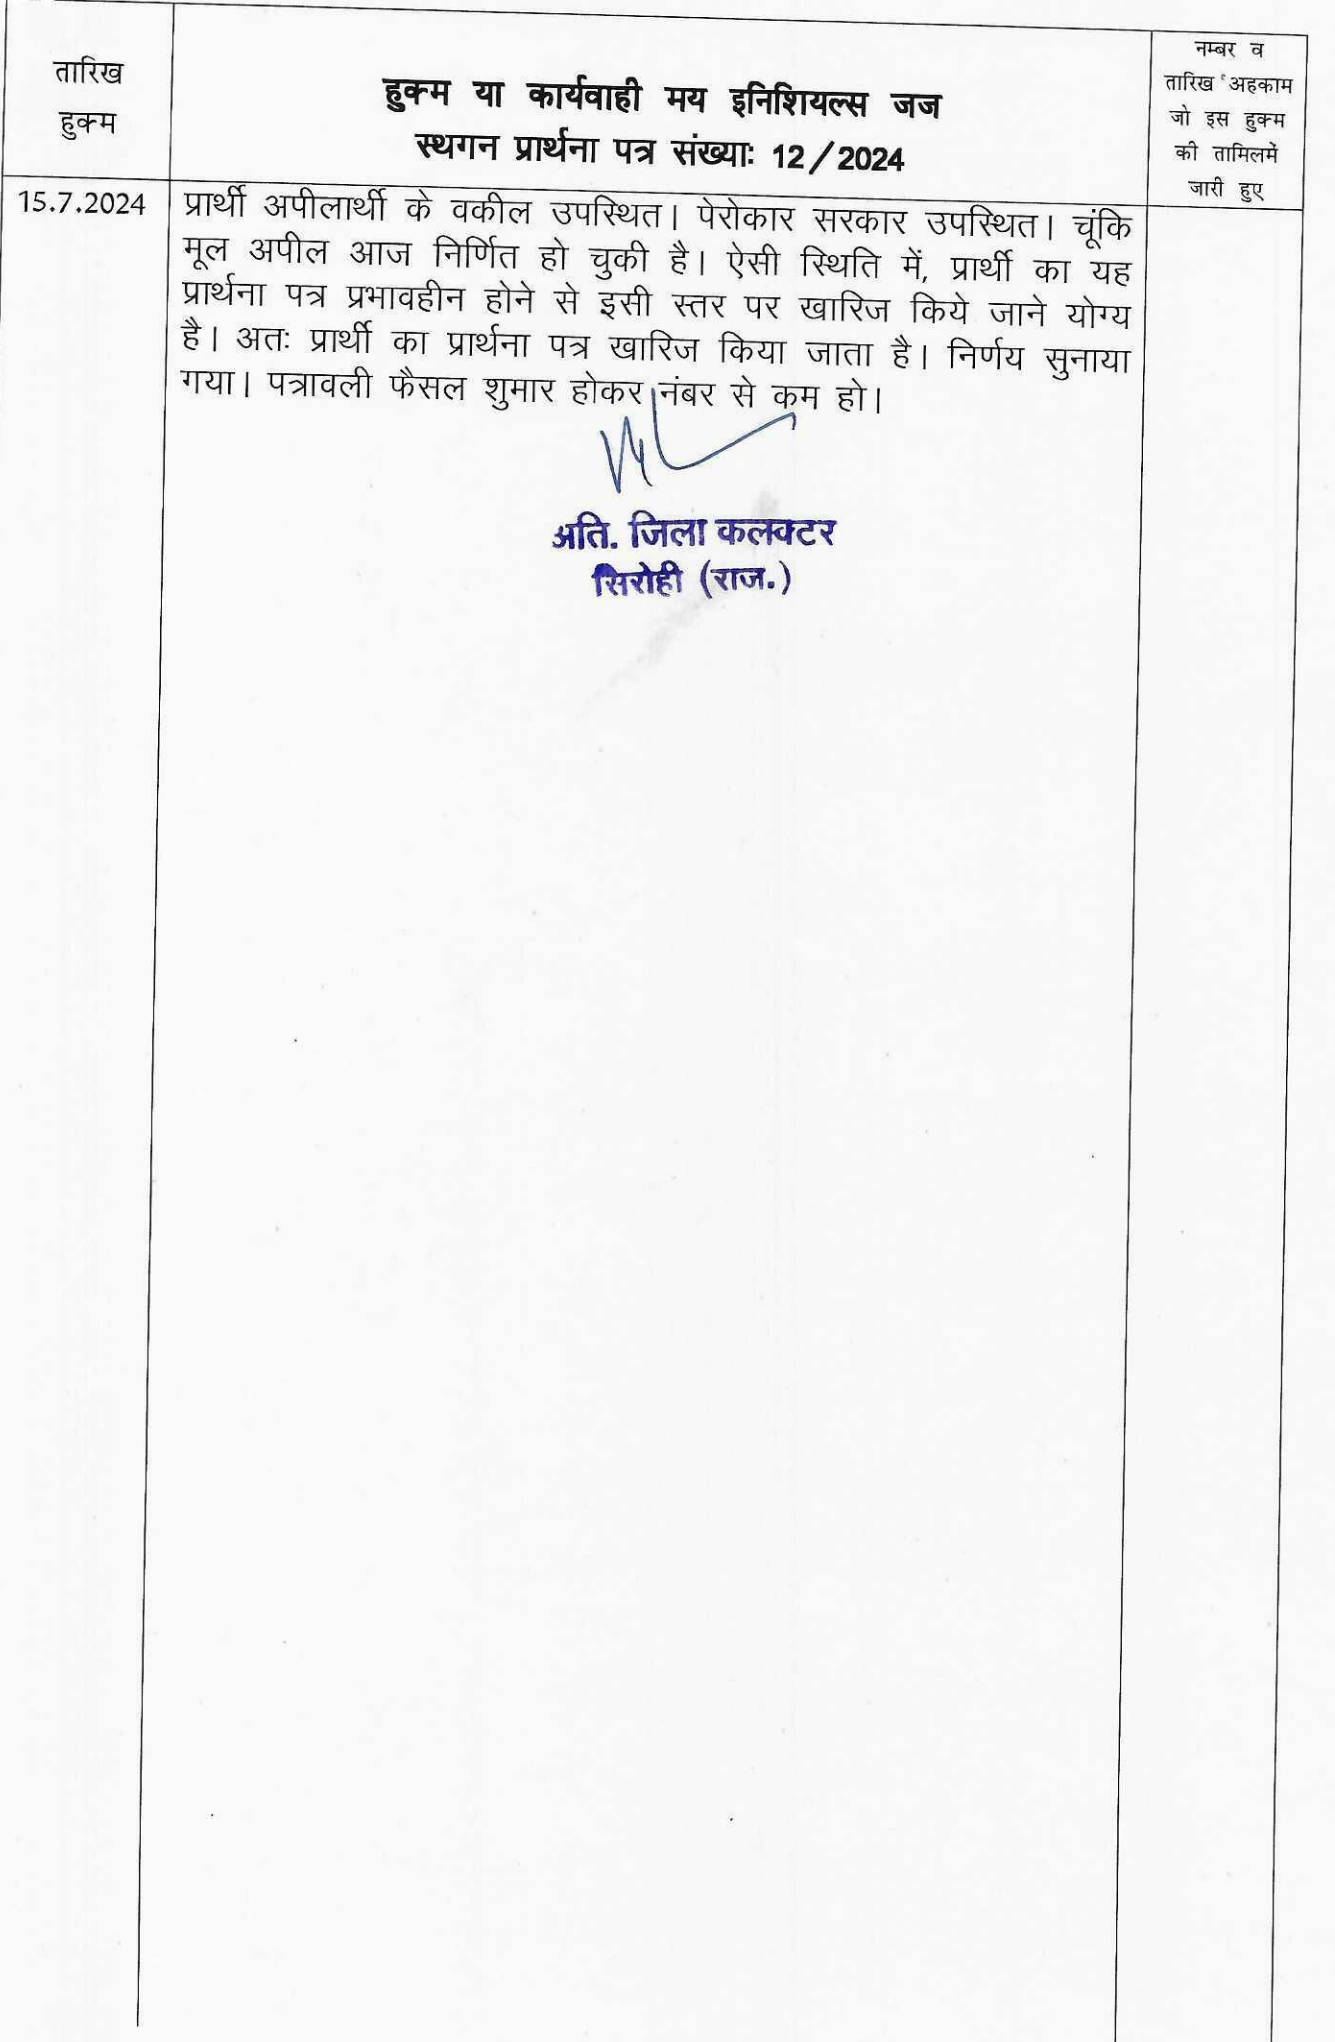 तारिख
हुक्म
हुक्म या कार्यवाही मय इनिशियल्स जज
स्थगन प्रार्थना पत्र संख्याः 12/2024
नम्बर व
तारिख अहकाम
जो इस हुक्म
की तामिलमें
जारी हुए
15.7.2024
प्रार्थी अपीलार्थी के वकील उपस्थित। पेरोकार सरकार उपस्थित। चूंकि
मूल अपील आज निर्णित हो चुकी है। ऐसी स्थिति में, प्रार्थी का यह
प्रार्थना पत्र प्रभावहीन होने से इसी स्तर पर खारिज किये जाने योग्य
है। अतः प्रार्थी का प्रार्थना पत्र खारिज किया जाता है। निर्णय सुनाया
गया। पत्रावली फैसल शुमार होकर नंबर से कम हो।
अति. जिला कलक्टर
सिरोही (राज.)